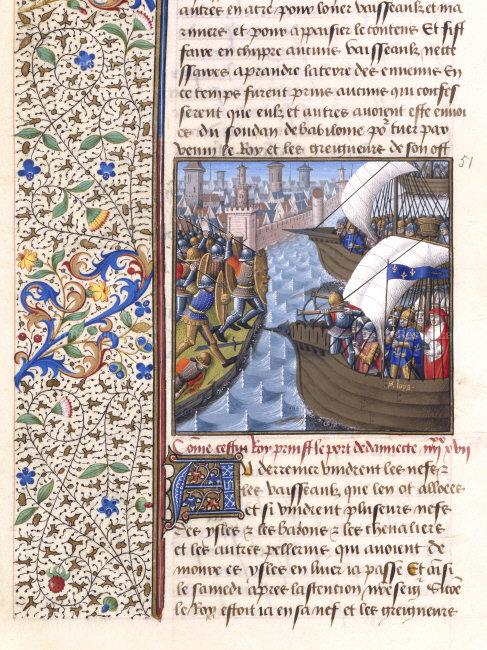 autres en acre pour louer vaisseaulx et ma
riniers et pour apaisier le contens Et fist
faire en chipre aucuns vaisseaulx nette
ssaires a prandre la terre des ennemis En
ce temps furent prins aucuns qui confes
serent que eulx et autres auoient este enuoi
es du soudan de babiloine po tuer par
venin le Roy et les greigneurs de son ost
51
Come cestui Roy prinst le port de damiette
Au derrenier vindrent les nefz et
les vaisseaulx que len ot alloces
et si vindrent plusieurs nefs
des ysles et les barons et les cheualiers
et les autres pellerins qui auoient de
moure es ysles en liuer ia passe Et aisi
le samedi apres lascention
le Roy estoit ia en sa nef et les greigneurs